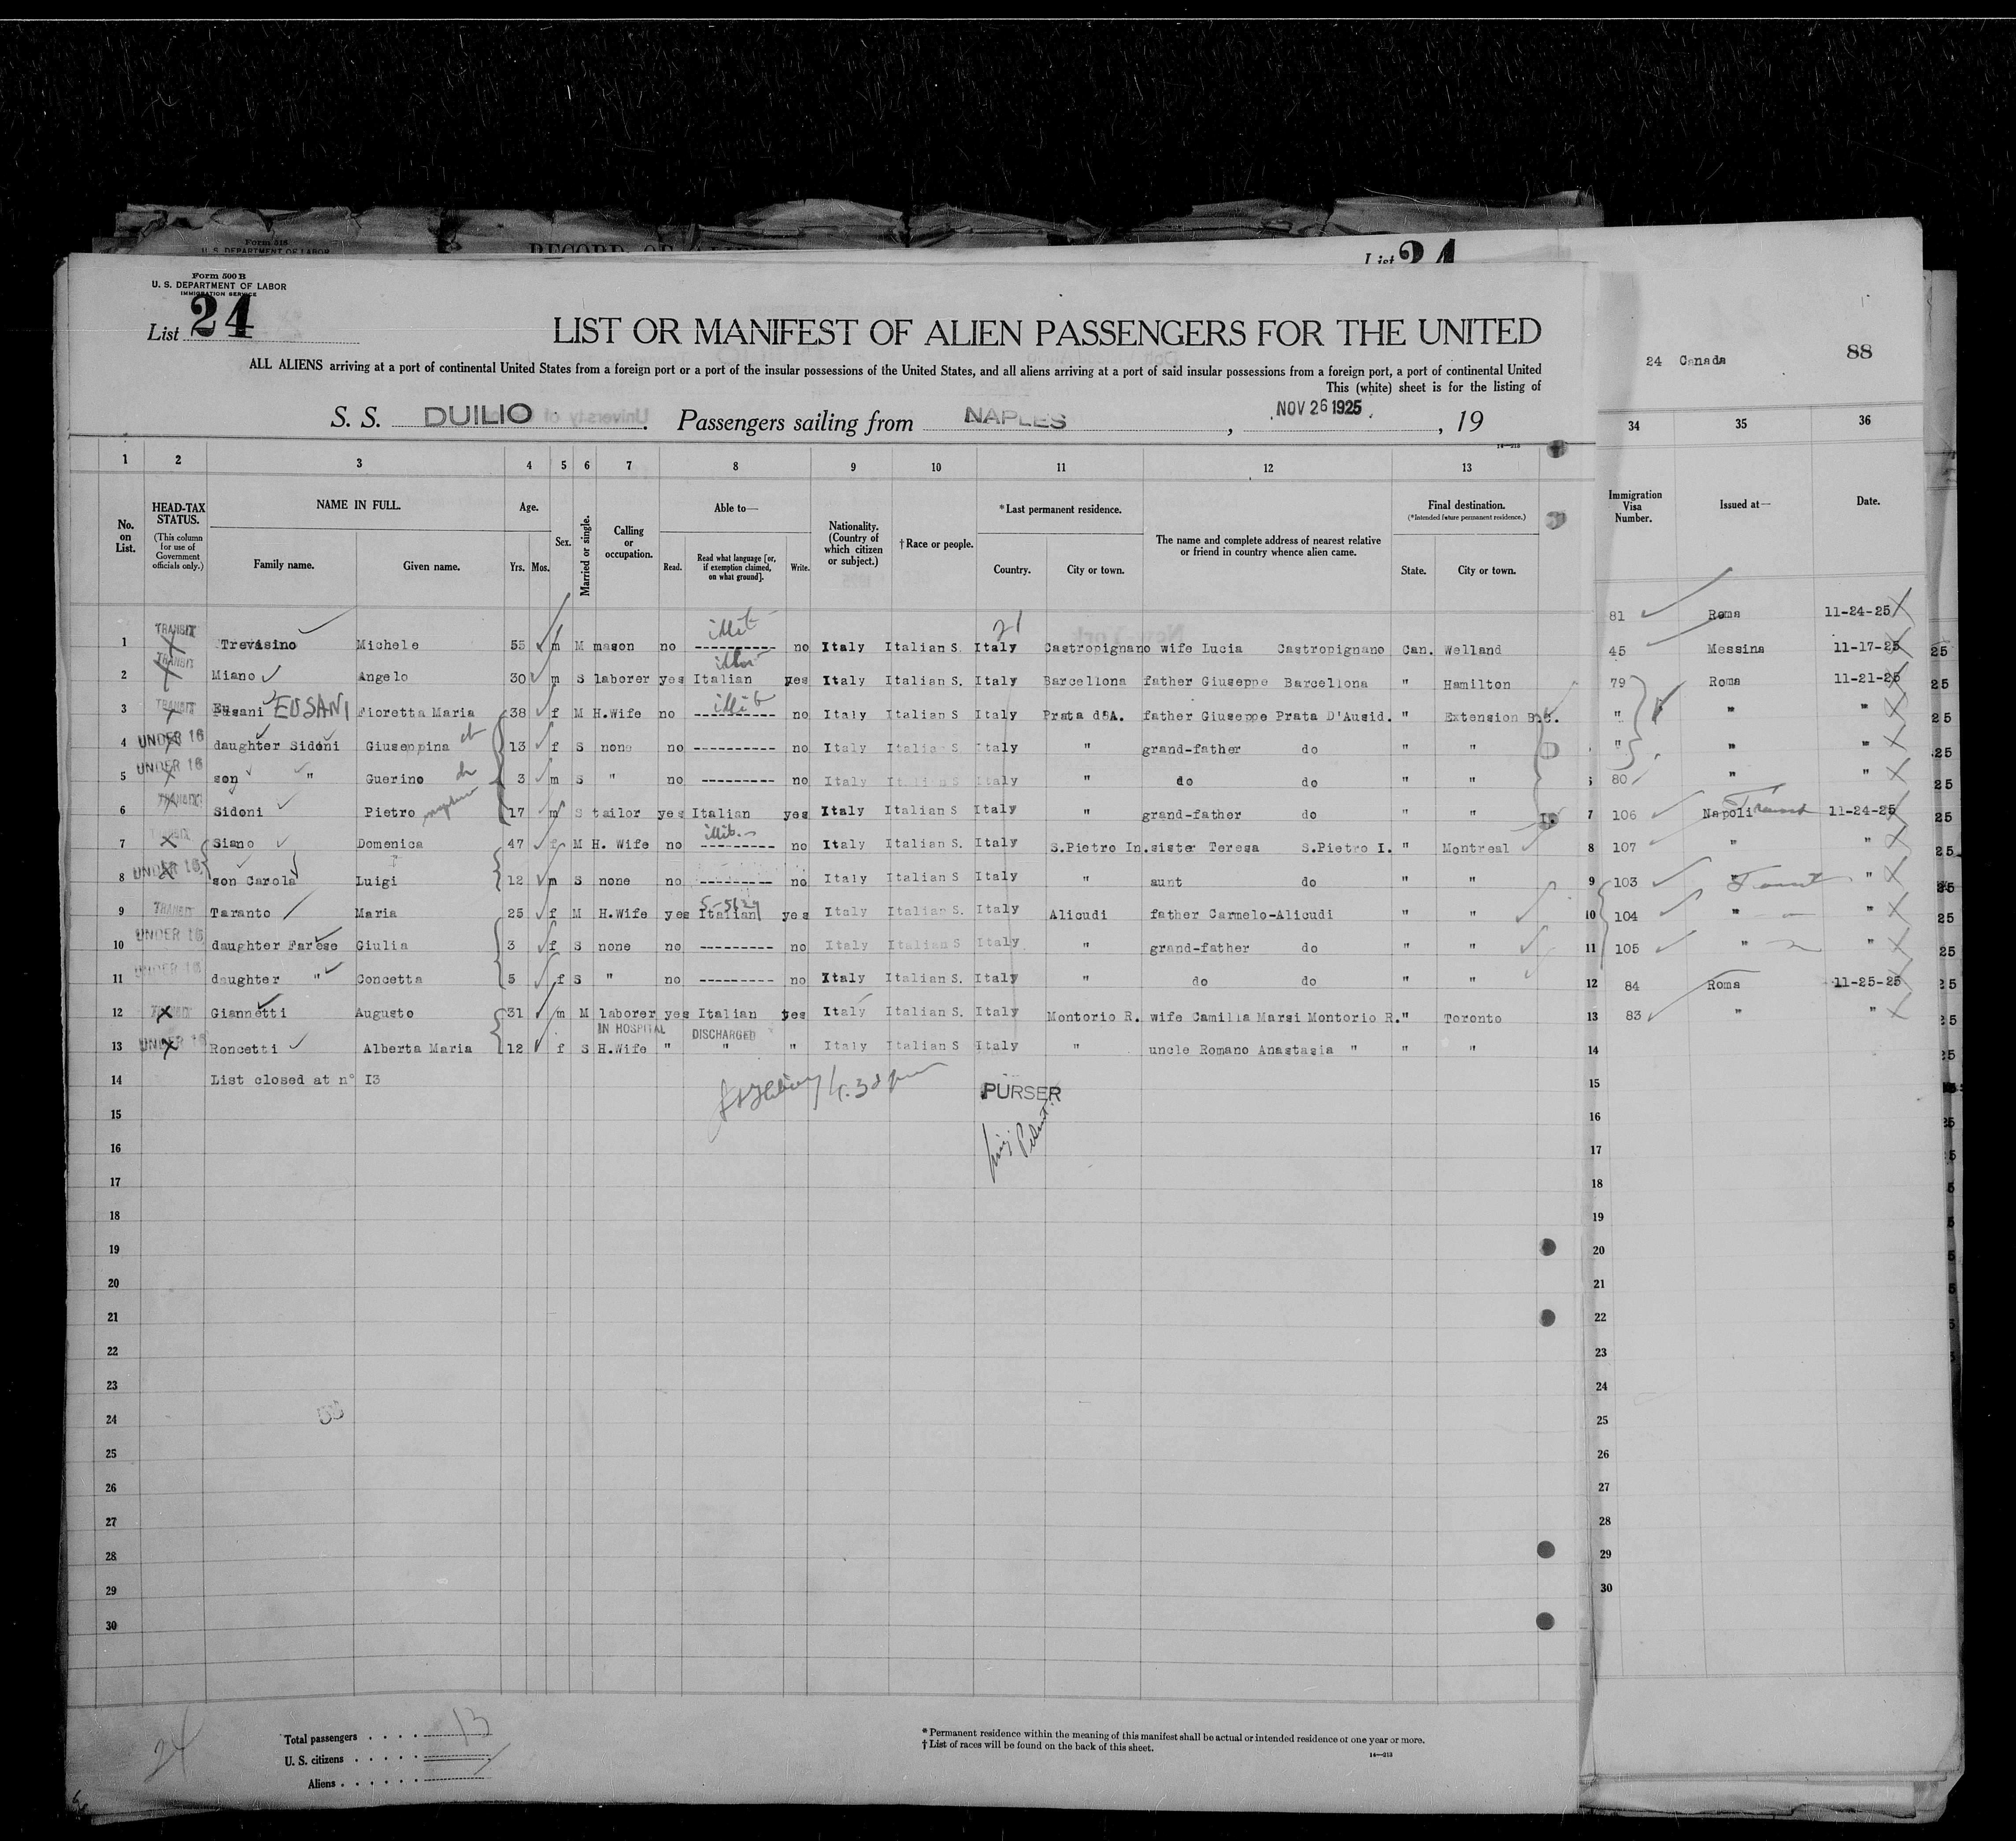 Form 500 B
U. S. DEPARTMENT OF LABOR
IMMIGRATION SERVICE
List 24
LIST OR MANIFEST OF ALIEN PASSENGERS FOR THE UNITED
ALL ALIENS arriving at a port of continental United States from a foreign port or a port of the insular possessions of the United States, and all aliens arriving at a port of said insular possessions from a foreign port, a port of continental United
This (white) sheet is for the listing of
S. S. DUILIO Passengers sailing from NAPLES , NOV 26 1925 , 19
24 Canada 88
1 2 3 4 5 6 7 8 9 10 11 12 13 34 35 36
No. on List. HEAD-TAX STATUS. (This column for use of Government officials only.) NAME IN FULL. Family name. Given name. Age. Yrs. Mos. Sex. Married or single. Calling or occupation. Able to— Read. Read what language [or, if exemption claimed, on what ground]. Write. Nationality. (Country of which citizen or subject.) †Race or people. *Last permanent residence. Country. City or town. The name and complete address of nearest relative or friend in country whence alien came. Final destination. (*Intended future permanent residence.) State. City or town. Immigration Visa Number. Issued at— Date.
1 TRANSIT Trevisino Michele 55 m M mason no illit --------- no Italy Italian S. Italy Castropignano wife Lucia Castropignano Can. Welland
2 TRANSIT Miano Angelo 30 m S laborer yes Italian yes Italy Italian S. Italy Barcellona father Giuseppe Barcellona " Hamilton
3 TRANSIT EUSANI Fioretta Maria 38 f M H.Wife no illit --------- no Italy Italian S Italy Prata d'A. father Giuseppe Prata D'Ausid. " Extension B.C.
4 UNDER 16 daughter Sidoni Giuseppina 13 f S none no --------- no Italy Italian S. Italy " grand-father do " "
5 UNDER 16 son " Guerino 3 m S " no --------- no Italy Italian S Italy " do do " "
6 TRANSIT Sidoni Pietro 17 m S tailor yes Italian yes Italy Italian S Italy " grand-father do " "
7 TRANSIT Siano Domenica 47 f M H. Wife no illit. --------- no Italy Italian S. Italy S.Pietro In. sister Teresa S.Pietro I. " Montreal
8 UNDER 16 son Carola Luigi 12 m S none no --------- no Italy Italian S Italy " aunt do " "
9 TRANSIT Taranto Maria 25 f M H.Wife yes Italian yes Italy Italian S. Italy Alicudi father Carmelo-Alicudi " "
10 UNDER 16 daughter Farese Giulia 3 f S none no --------- no Italy Italian S Italy " grand-father do " "
11 UNDER 16 daughter " Concetta 5 f S " no --------- no Italy Italian S. Italy " do do " "
12 TRANSIT Giannetti Augusto 31 m M laborer yes Italian yes Italy Italian S. Italy Montorio R. wife Camilla Marsi Montorio R. " Toronto
IN HOSPITAL DISCHARGED
13 UNDER 16 Roncetti Alberta Maria 12 f S H.Wife " " " Italy Italian S Italy " uncle Romano Anastasia " " "
14 List closed at n° I3
PURSER
15
16
17
18
19
20
21
22
23
24
25
26
27
28
29
30
81 Roma 11-24-25
45 Messina 11-17-25
79 Roma 11-21-25
" " "
" " "
80 " "
7 106 Napoli Transit 11-24-25
8 107 " "
9 103 " "
10 104 " "
11 105 " "
12 84 Roma 11-25-25
13 83 " "
14
15
16
17
18
19
20
21
22
23
24
25
26
27
28
29
30
24
Total passengers 13
U. S. citizens
Aliens
* Permanent residence within the meaning of this manifest shall be actual or intended residence of one year or more.
† List of races will be found on the back of this sheet.
14—213